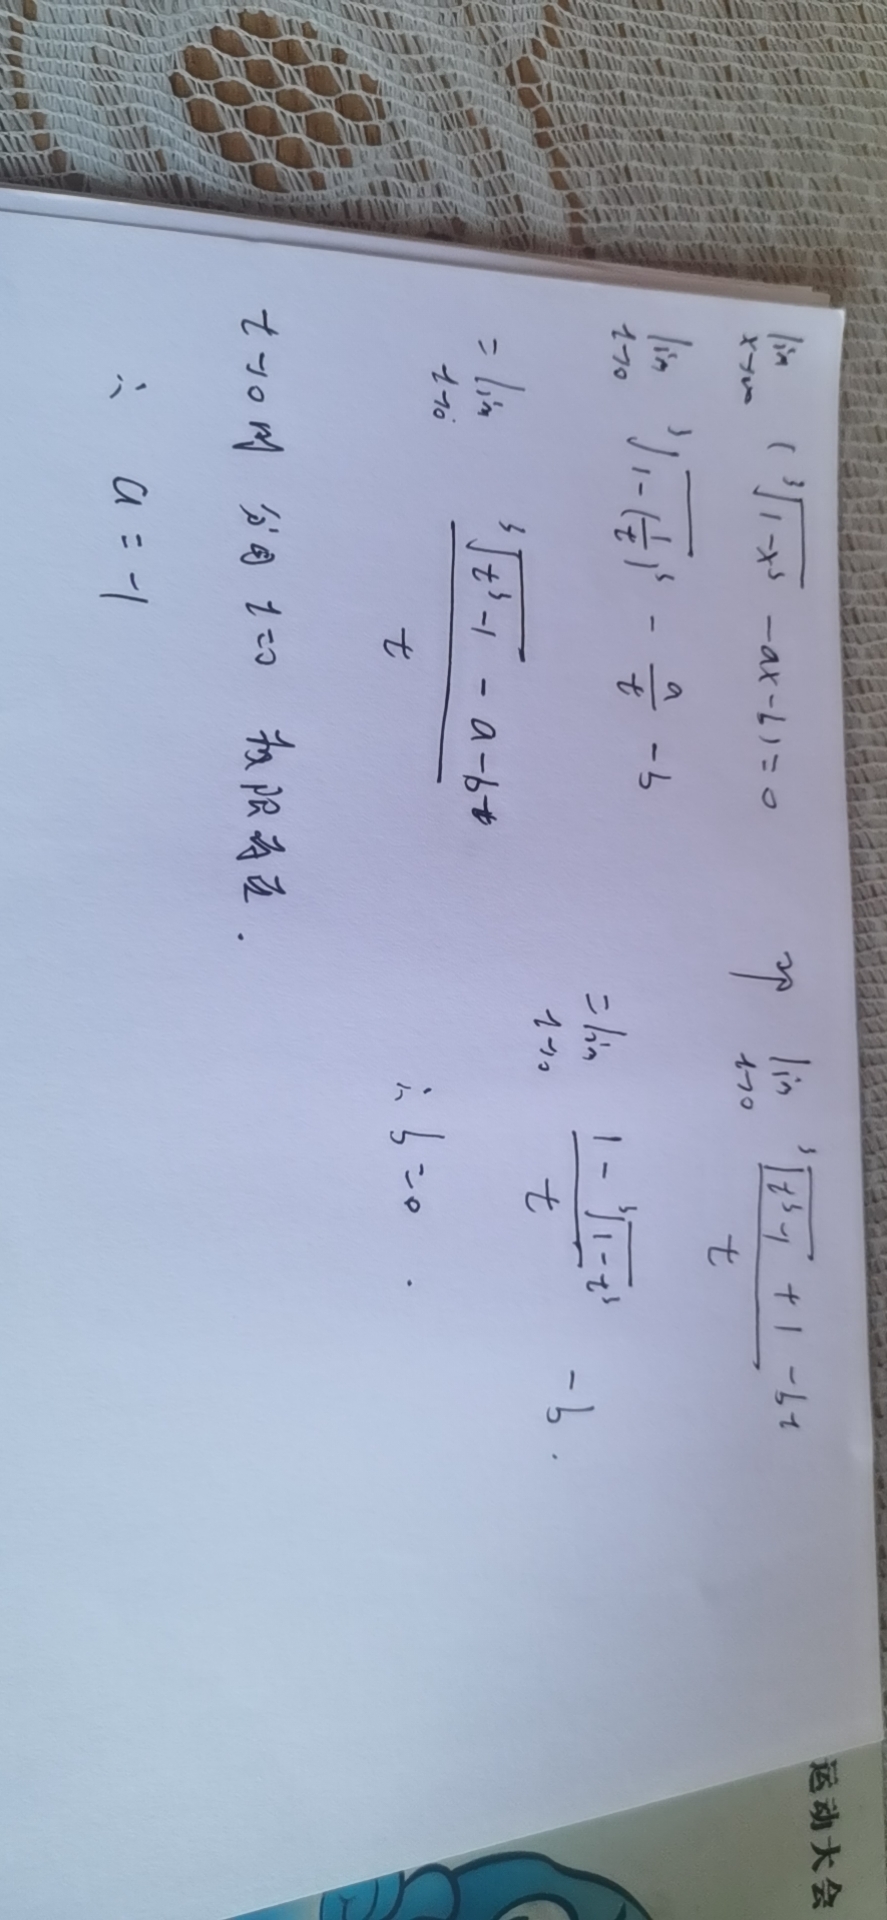 lim x→∞ (∛(1-x³) - ax - b) = 0
lim t→0 ∛(1-(1/t)³) - a/t - b
= lim t→0 (∛(t³-1) - a - bt)/t
t→0时 分母 t=0 极限存在.
∴ a = -1
即 lim t→0 (∛(t³-1) + 1 - bt)/t
= lim t→0 (1 - ∛(1-t³))/t - b.
∴ b = 0.
运动大会